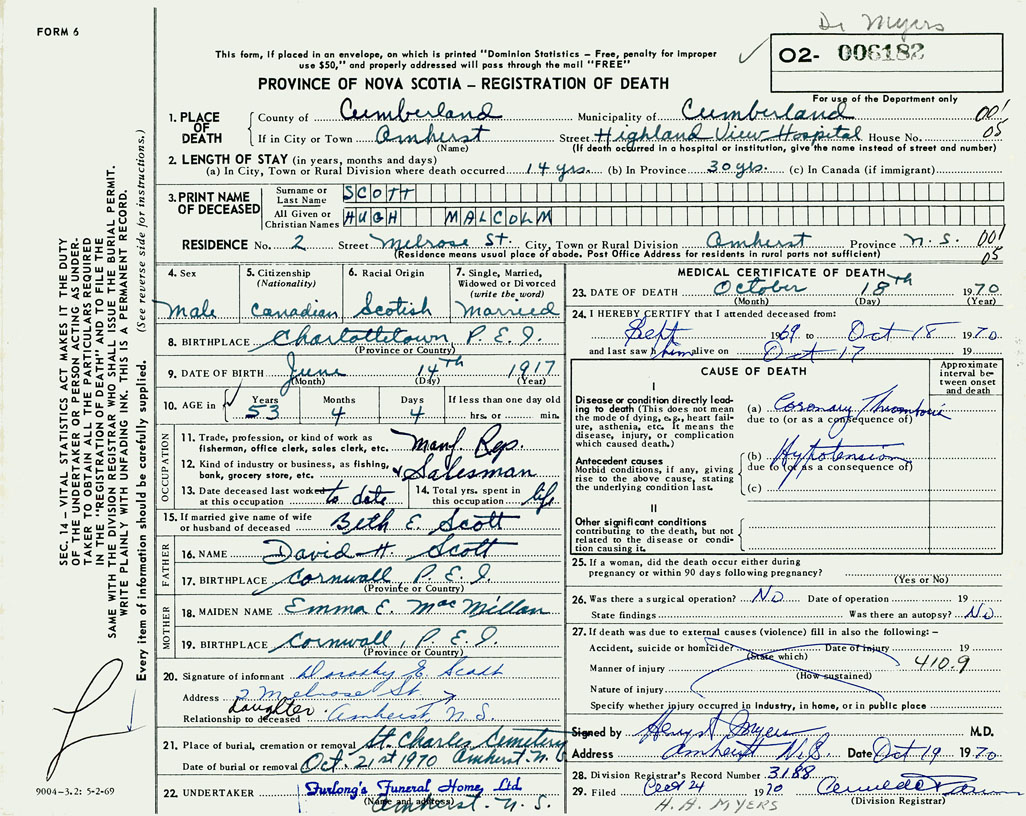 FORM 6
Dr Myers
O2- 006182
This form, if placed in an envelope, on which is printed "Dominion Statistics – Free, penalty for improper
use $50," and properly addressed will pass through the mail "FREE"
PROVINCE OF NOVA SCOTIA – REGISTRATION OF DEATH
For use of the Department only
1. PLACE OF DEATH County of Cumberland Municipality of Cumberland 001
If in City or Town Amherst Street Highland View Hospital House No. 05
(Name) (If death occurred in a hospital or institution, give the name instead of street and number)
2. LENGTH OF STAY (in years, months and days)
(a) In City, Town or Rural Division where death occurred 14 yrs. (b) In Province 30 yrs. (c) In Canada (if immigrant)
3. PRINT NAME OF DECEASED Surname or Last Name SCOTT
All Given or Christian Names HUGH MALCOLM
RESIDENCE No. 2 Street Melrose St. City, Town or Rural Division Amherst Province N.S. 001
(Residence means usual place of abode. Post Office Address for residents in rural parts not sufficient) 05
4. Sex Male
5. Citizenship (Nationality) Canadian
6. Racial Origin Scotish
7. Single, Married, Widowed or Divorced (write the word) Married
8. BIRTHPLACE Charlottetown, P.E.I.
(Province or Country)
9. DATE OF BIRTH June 14th 1917
(Month) (Day) (Year)
10. AGE in Years 53 Months 4 Days 4 If less than one day old hrs. or min.
OCCUPATION
11. Trade, profession, or kind of work as fisherman, office clerk, sales clerk, etc. Manf. Rep.
12. Kind of industry or business, as fishing, bank, grocery store, etc. Salesman
13. Date deceased last worked at this occupation to date
14. Total yrs. spent in this occupation life
15. If married give name of wife or husband of deceased Beth E. Scott
FATHER
16. NAME David H. Scott
17. BIRTHPLACE Cornwall, P.E.I.
(Province or Country)
MOTHER
18. MAIDEN NAME Emma E. MacMillan
19. BIRTHPLACE Cornwall, P.E.I.
(Province or Country)
20. Signature of informant Dorothy E. Scott
Address 2 Melrose St
Relationship to deceased daughter Amherst, N.S.
21. Place of burial, cremation or removal St. Charles Cemetery
Date of burial or removal Oct. 21st 1970 Amherst. N.S.
22. UNDERTAKER Furlong's Funeral Home Ltd.
(Name and address) Amherst. N.S.
MEDICAL CERTIFICATE OF DEATH
23. DATE OF DEATH October 18th 1970
(Month) (Day) (Year)
24. I HEREBY CERTIFY that I attended deceased from:
Sept 1969 to Oct 18 1970
and last saw him alive on Oct 17 19
CAUSE OF DEATH
Approximate interval between onset and death
I
Disease or condition directly leading to death (This does not mean the mode of dying, e.g., heart failure, asthenia, etc. It means the disease, injury, or complication which caused death.)
(a) Coronary Thrombosis
due to (or as a consequence of)
Antecedent causes
Morbid conditions, if any, giving rise to the above cause, stating the underlying condition last.
(b) Hypotension
due to (or as a consequence of)
(c)
II
Other significant conditions contributing to the death, but not related to the disease or condition causing it.
25. If a woman, did the death occur either during
pregnancy or within 90 days following pregnancy?
(Yes or No)
26. Was there a surgical operation? No Date of operation 19
State findings Was there an autopsy? No
27. If death was due to external causes (violence) fill in also the following: –
Accident, suicide or homicide? Date of injury 19
(State which) 410.9
Manner of injury
(How sustained)
Nature of injury
Specify whether injury occurred in industry, in home, or in public place
Signed by Myers M.D.
Address Amherst N.S. Date Oct 19 1970
28. Division Registrar's Record Number 3188
29. Filed Oct 24 1970
(Division Registrar)
H. A. MYERS
SEC. 14 – VITAL STATISTICS ACT MAKES IT THE DUTY
OF THE UNDERTAKER OR PERSON ACTING AS UNDER-
TAKER TO OBTAIN ALL THE PARTICULARS REQUIRED
IN THE "REGISTRATION OF DEATH" AND TO FILE THE
SAME WITH THE DIVISION REGISTRAR WHO SHALL ISSUE THE BURIAL PERMIT.
WRITE PLAINLY WITH UNFADING INK. THIS IS A PERMANENT RECORD.
Every item of information should be carefully supplied. (See reverse side for instructions.)
9004-3.2: 5-2-69